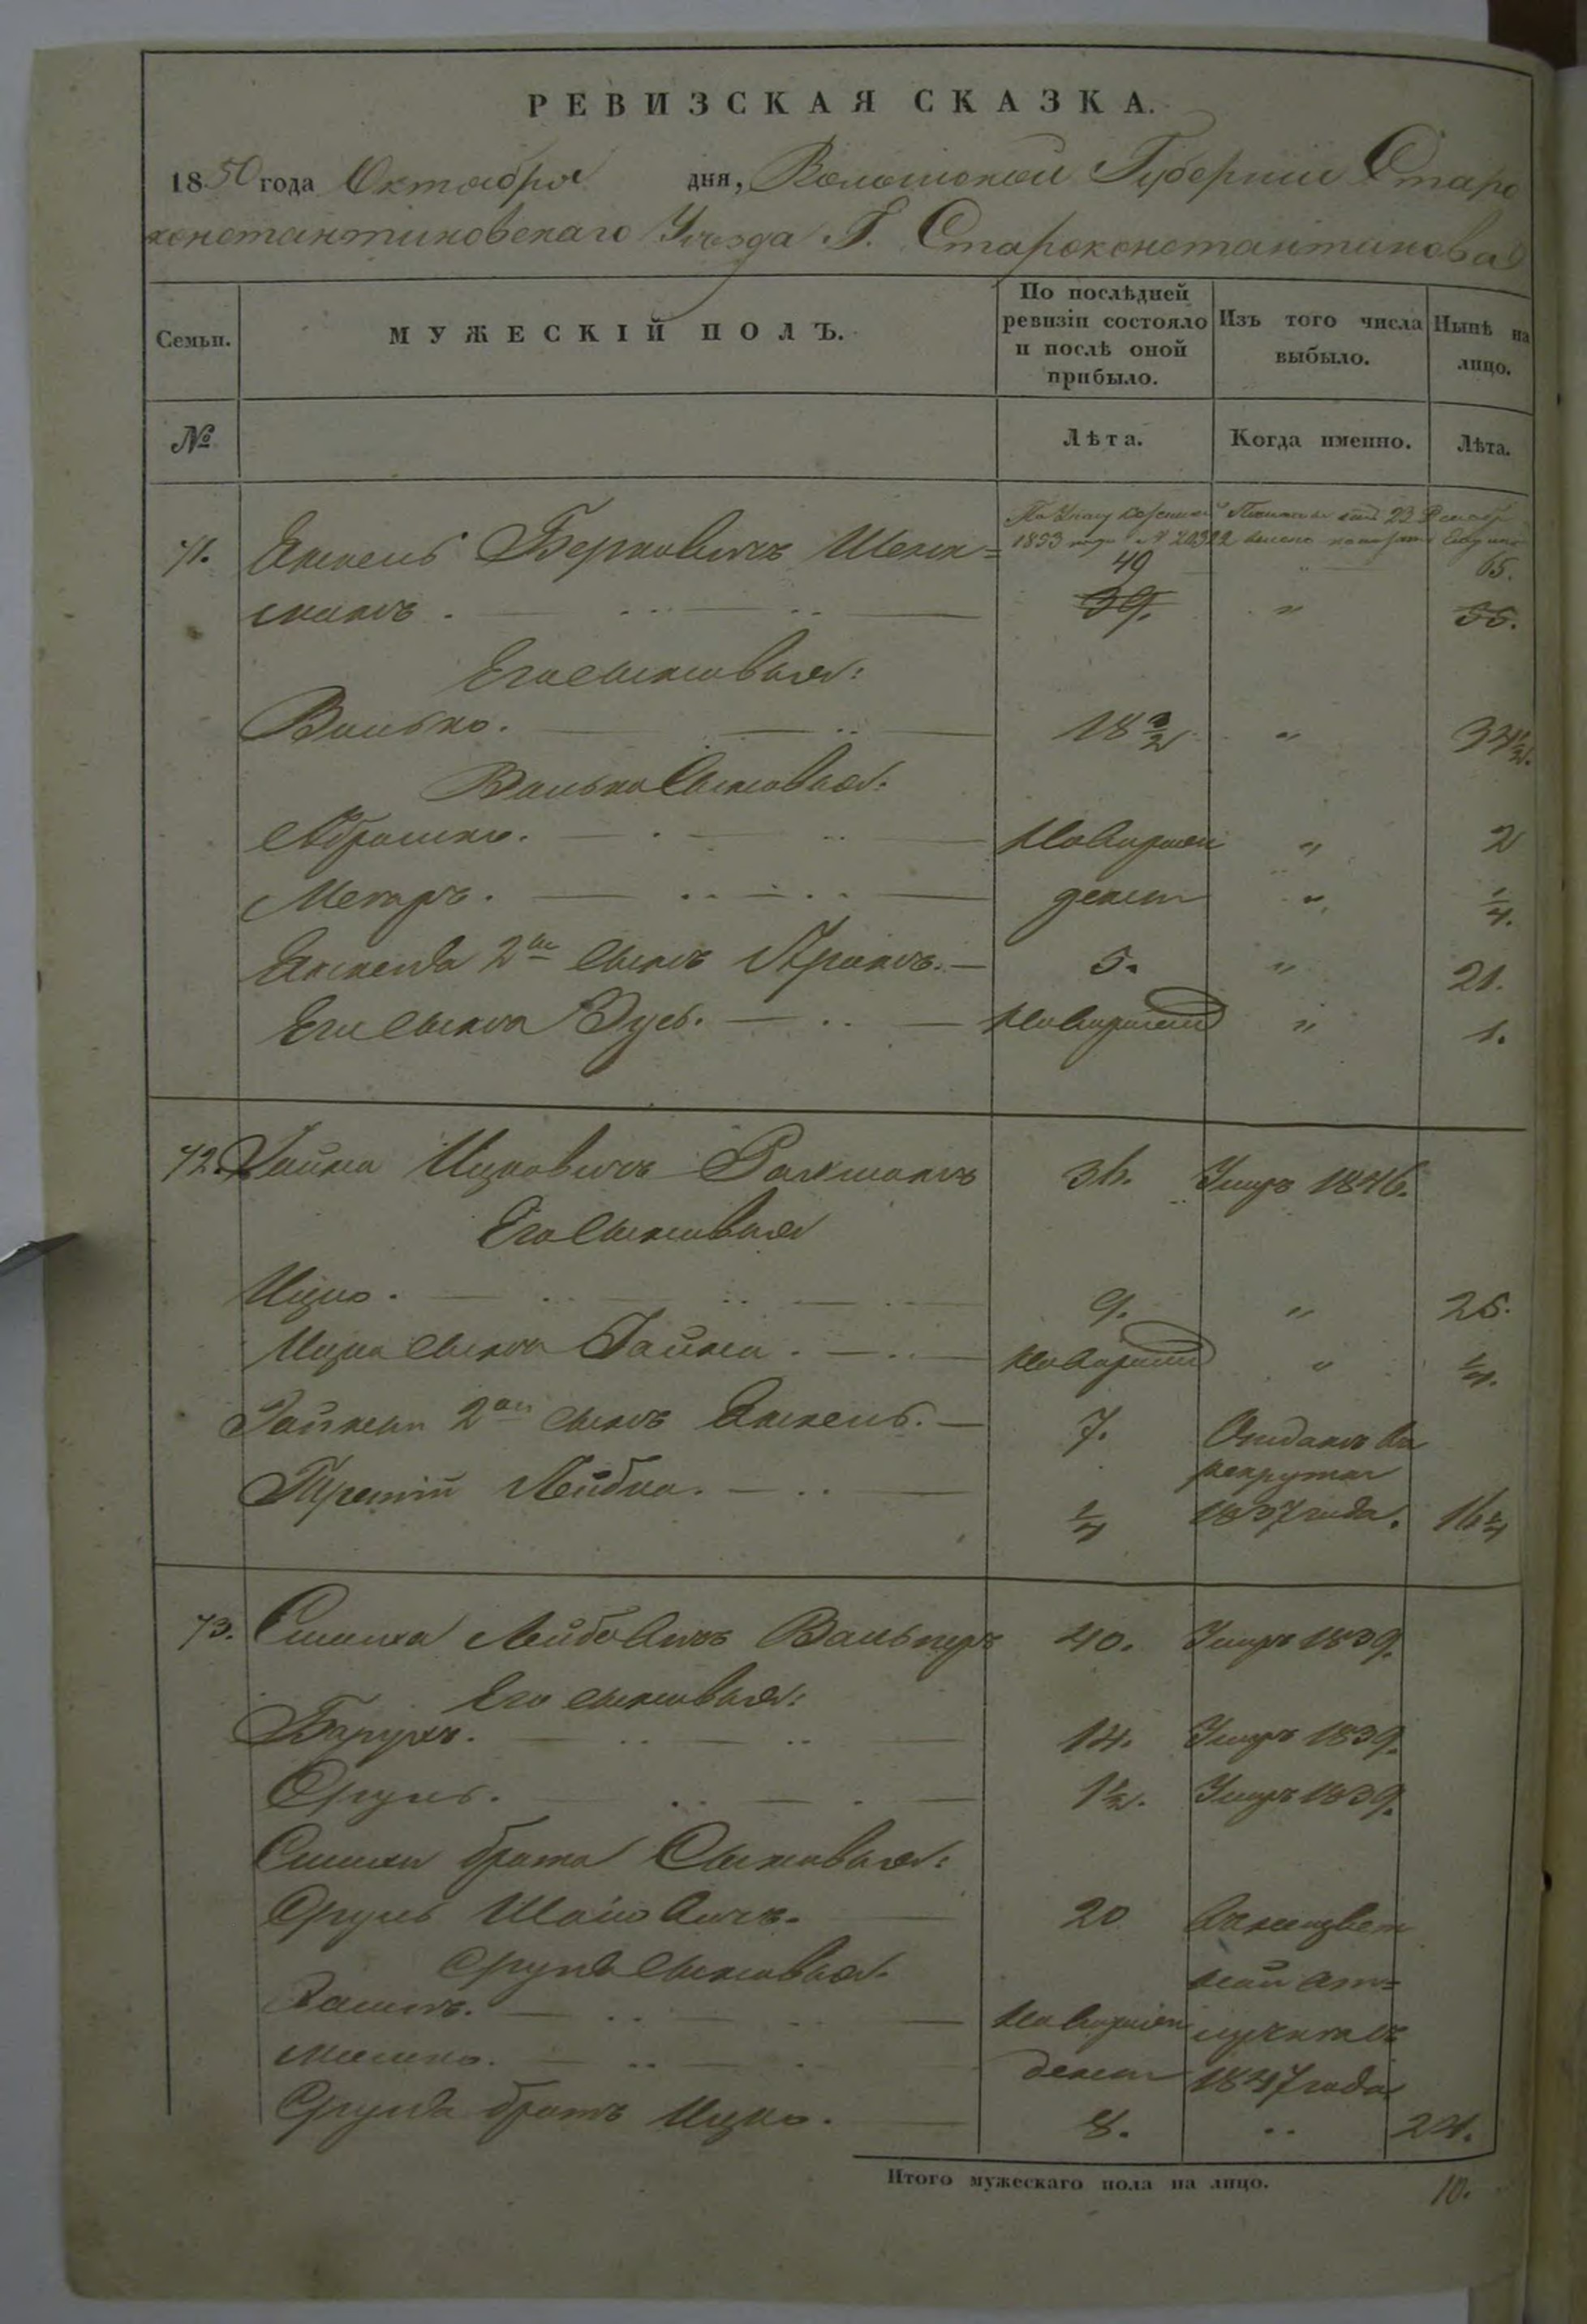 РЕВИЗСКАЯ СКАЗКА.
1850 года Октября дня, Волынской Губернии Старо
константиновскаго Уѣзда Г. Староконстантинова
Семьи.
МУЖЕСКІЙ ПОЛЪ.
По послѣдней ревизіи состояло и послѣ оной прибыло.
Изъ того числа выбыло.
Нынѣ на лицо.
№
Лѣта.
Когда именно.
Лѣта.
По Указу Казенной Палаты 23 Декабр
1853 года № 20322
71. Янкель Берковичъ
49 65.
39. " 55.
Его сыновья:
Волько. 18 3/2 " 34 1/2.
Волька Сыновья:
Абрамко. Новорожден "  2
Мееръ. денъ " 1/4.
Янкеля 2ой сынъ Аронъ. 5. " 21.
Его Сынъ Зусь. Новорожден " 1.
72. Хаимъ Ицковичъ 36. Умръ 1846.
Его Сыновья
Ицко. 9. " 25.
Ицка сынъ Хаимъ. Новорожден " 1/4.
2ой сынъ Янкель. 7. Отданъ въ
рекруты
Третій Лейбка. 1/4 1837 года. 16 1/4
73. Симха Лейбовичъ 40. Умръ 1839.
Его сыновья:
Барухъ. 14. Умръ 1839.
Сруль. 1 1/2. Умръ 1839.
Симхи брата Сыновья:
Сруль 20 Въ неизвѣст
Сруля Сыновья. ной от=
Новорожден лучкѣ съ
Мошко. денъ 1847 года
Сруля братъ Ицко. 8. " 24.
Итого мужескаго пола на лицо. 10.